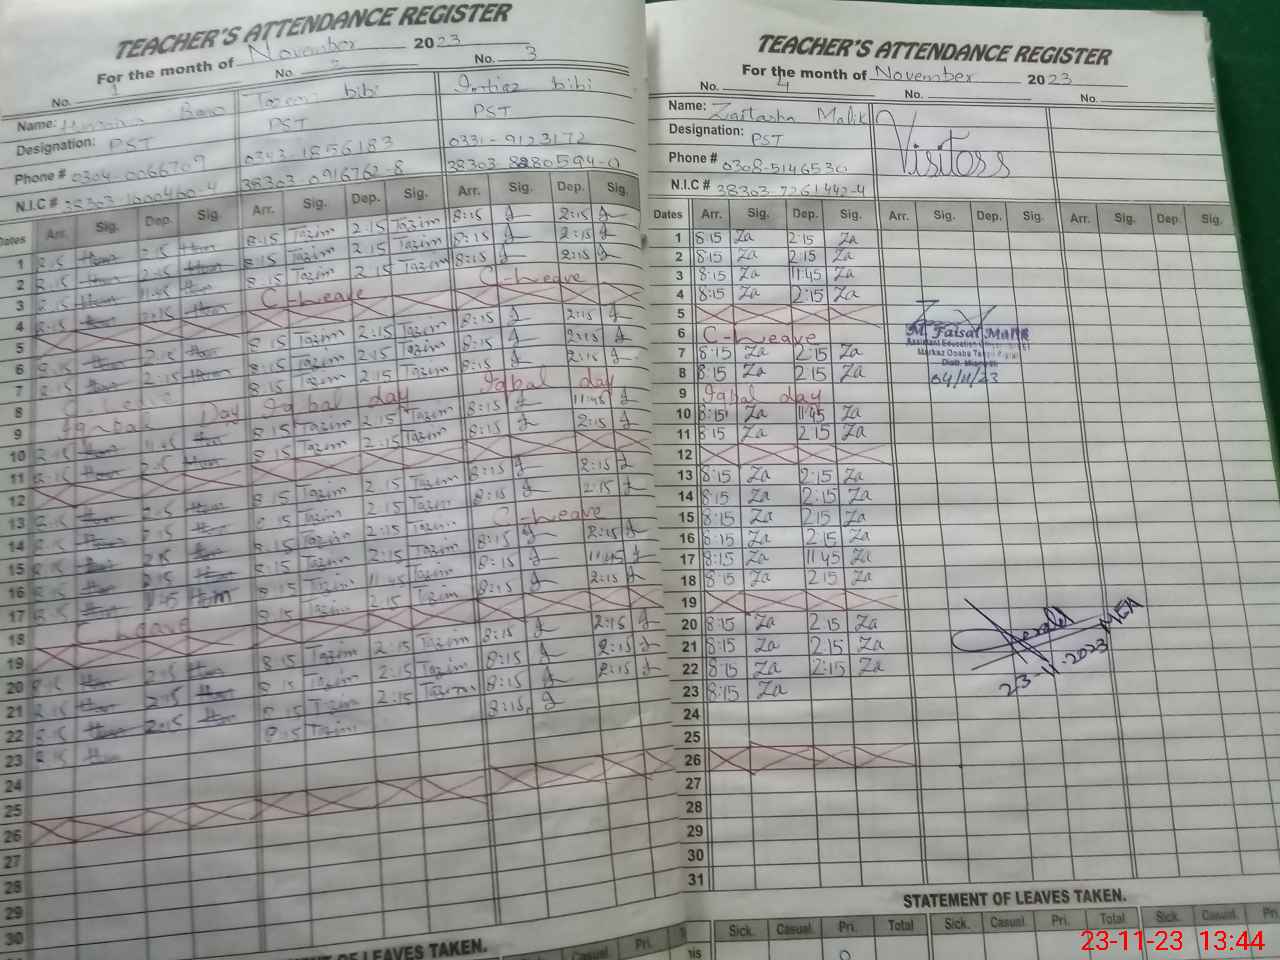 TEACHER'S ATTENDANCE REGISTER
For the month of November 2023
No. 1 No. 2 No. 3
Name: Bano Tazeem bibi Imtiaz bibi
Designation: PST PST PST
Phone # 0304-0066709 0343-1856183 0331-9123172
N.I.C # 38303-1600460-4 38303-0916762-8 38303-8880594-0
Dates Arr. Sig. Dep. Sig. Arr. Sig. Dep. Sig. Arr. Sig. Dep. Sig.
1 8:15 2:15 8:15 Tazim 2:15 Tazim 8:15 2:15
2 8:15 2:15 8:15 Tazim 2:15 Tazim 8:15 2:15
3 8:15 11:45 8:15 Tazim 2:15 Tazim 8:15 2:15
4 8:15 2:15 C-Leave C-Leave
5
6 8:15 2:15 8:15 Tazim 2:15 Tazim 8:15 2:15
7 8:15 2:15 8:15 Tazim 2:15 Tazim 8:15 2:15
8 C-Leave 8:15 Tazim 2:15 Tazim 8:15 2:15
9 Iqbal Day Iqbal day Iqbal day
10 8:15 11:45 8:15 Tazim 2:15 Tazim 8:15 11:45
11 8:15 2:15 8:15 Tazim 2:15 Tazim 8:15 2:15
12
13 8:15 2:15 8:15 Tazim 2:15 Tazim 8:15 2:15
14 8:15 2:15 8:15 Tazim 2:15 Tazim 8:15 2:15
15 8:15 2:15 8:15 Tazim 2:15 Tazim C-Leave
16 8:15 2:15 8:15 Tazim 2:15 Tazim 8:15 2:15
17 8:15 8:15 Tazim 11:45 Tazim 8:15 11:45
18 C-Leave 8:15 Tazim 2:15 Tazim 8:15 2:15
19
20 8:15 2:15 8:15 Tazim 2:15 Tazim 8:15 2:15
21 8:15 2:15 8:15 Tazim 2:15 Tazim 8:15 2:15
22 8:15 2:15 8:15 Tazim 2:15 Tazim 8:15 2:15
23 8:15 8:15 Tazim 8:15
24
25
26
27
28
29
30
OF LEAVES TAKEN.
Pri.
TEACHER'S ATTENDANCE REGISTER
For the month of November 2023
No. 4 No. No.
Name: Zartasha Malik Visitors
Designation: PST
Phone # 0308-5146530
N.I.C # 38303-7261442-4
Dates Arr. Sig. Dep. Sig. Arr. Sig. Dep. Sig. Arr. Sig. Dep. Sig.
1 8:15 Za 2:15 Za
2 8:15 Za 2:15 Za
3 8:15 Za 11:45 Za
4 8:15 Za 2:15 Za
5
6 C-Leave
7 8:15 Za 2:15 Za
8 8:15 Za 2:15 Za
9 Iqbal day
10 8:15 Za 11:45 Za
11 8:15 Za 2:15 Za
12
13 8:15 Za 2:15 Za
14 8:15 Za 2:15 Za
15 8:15 Za 2:15 Za
16 8:15 Za 2:15 Za
17 8:15 Za 11:45 Za
18 8:15 Za 2:15 Za
19
20 8:15 Za 2:15 Za
21 8:15 Za 2:15 Za
22 8:15 Za 2:15 Za
23 8:15 Za
24
25
26
27
28
29
30
31
M. Faisal Malik
Assistant Education
Markaz
04/11/23
MEA
23-11-2023
STATEMENT OF LEAVES TAKEN.
Sick. Casual. Pri. Total Sick. Casual. Pri. Total Sick. Casual.
23-11-23 13:44